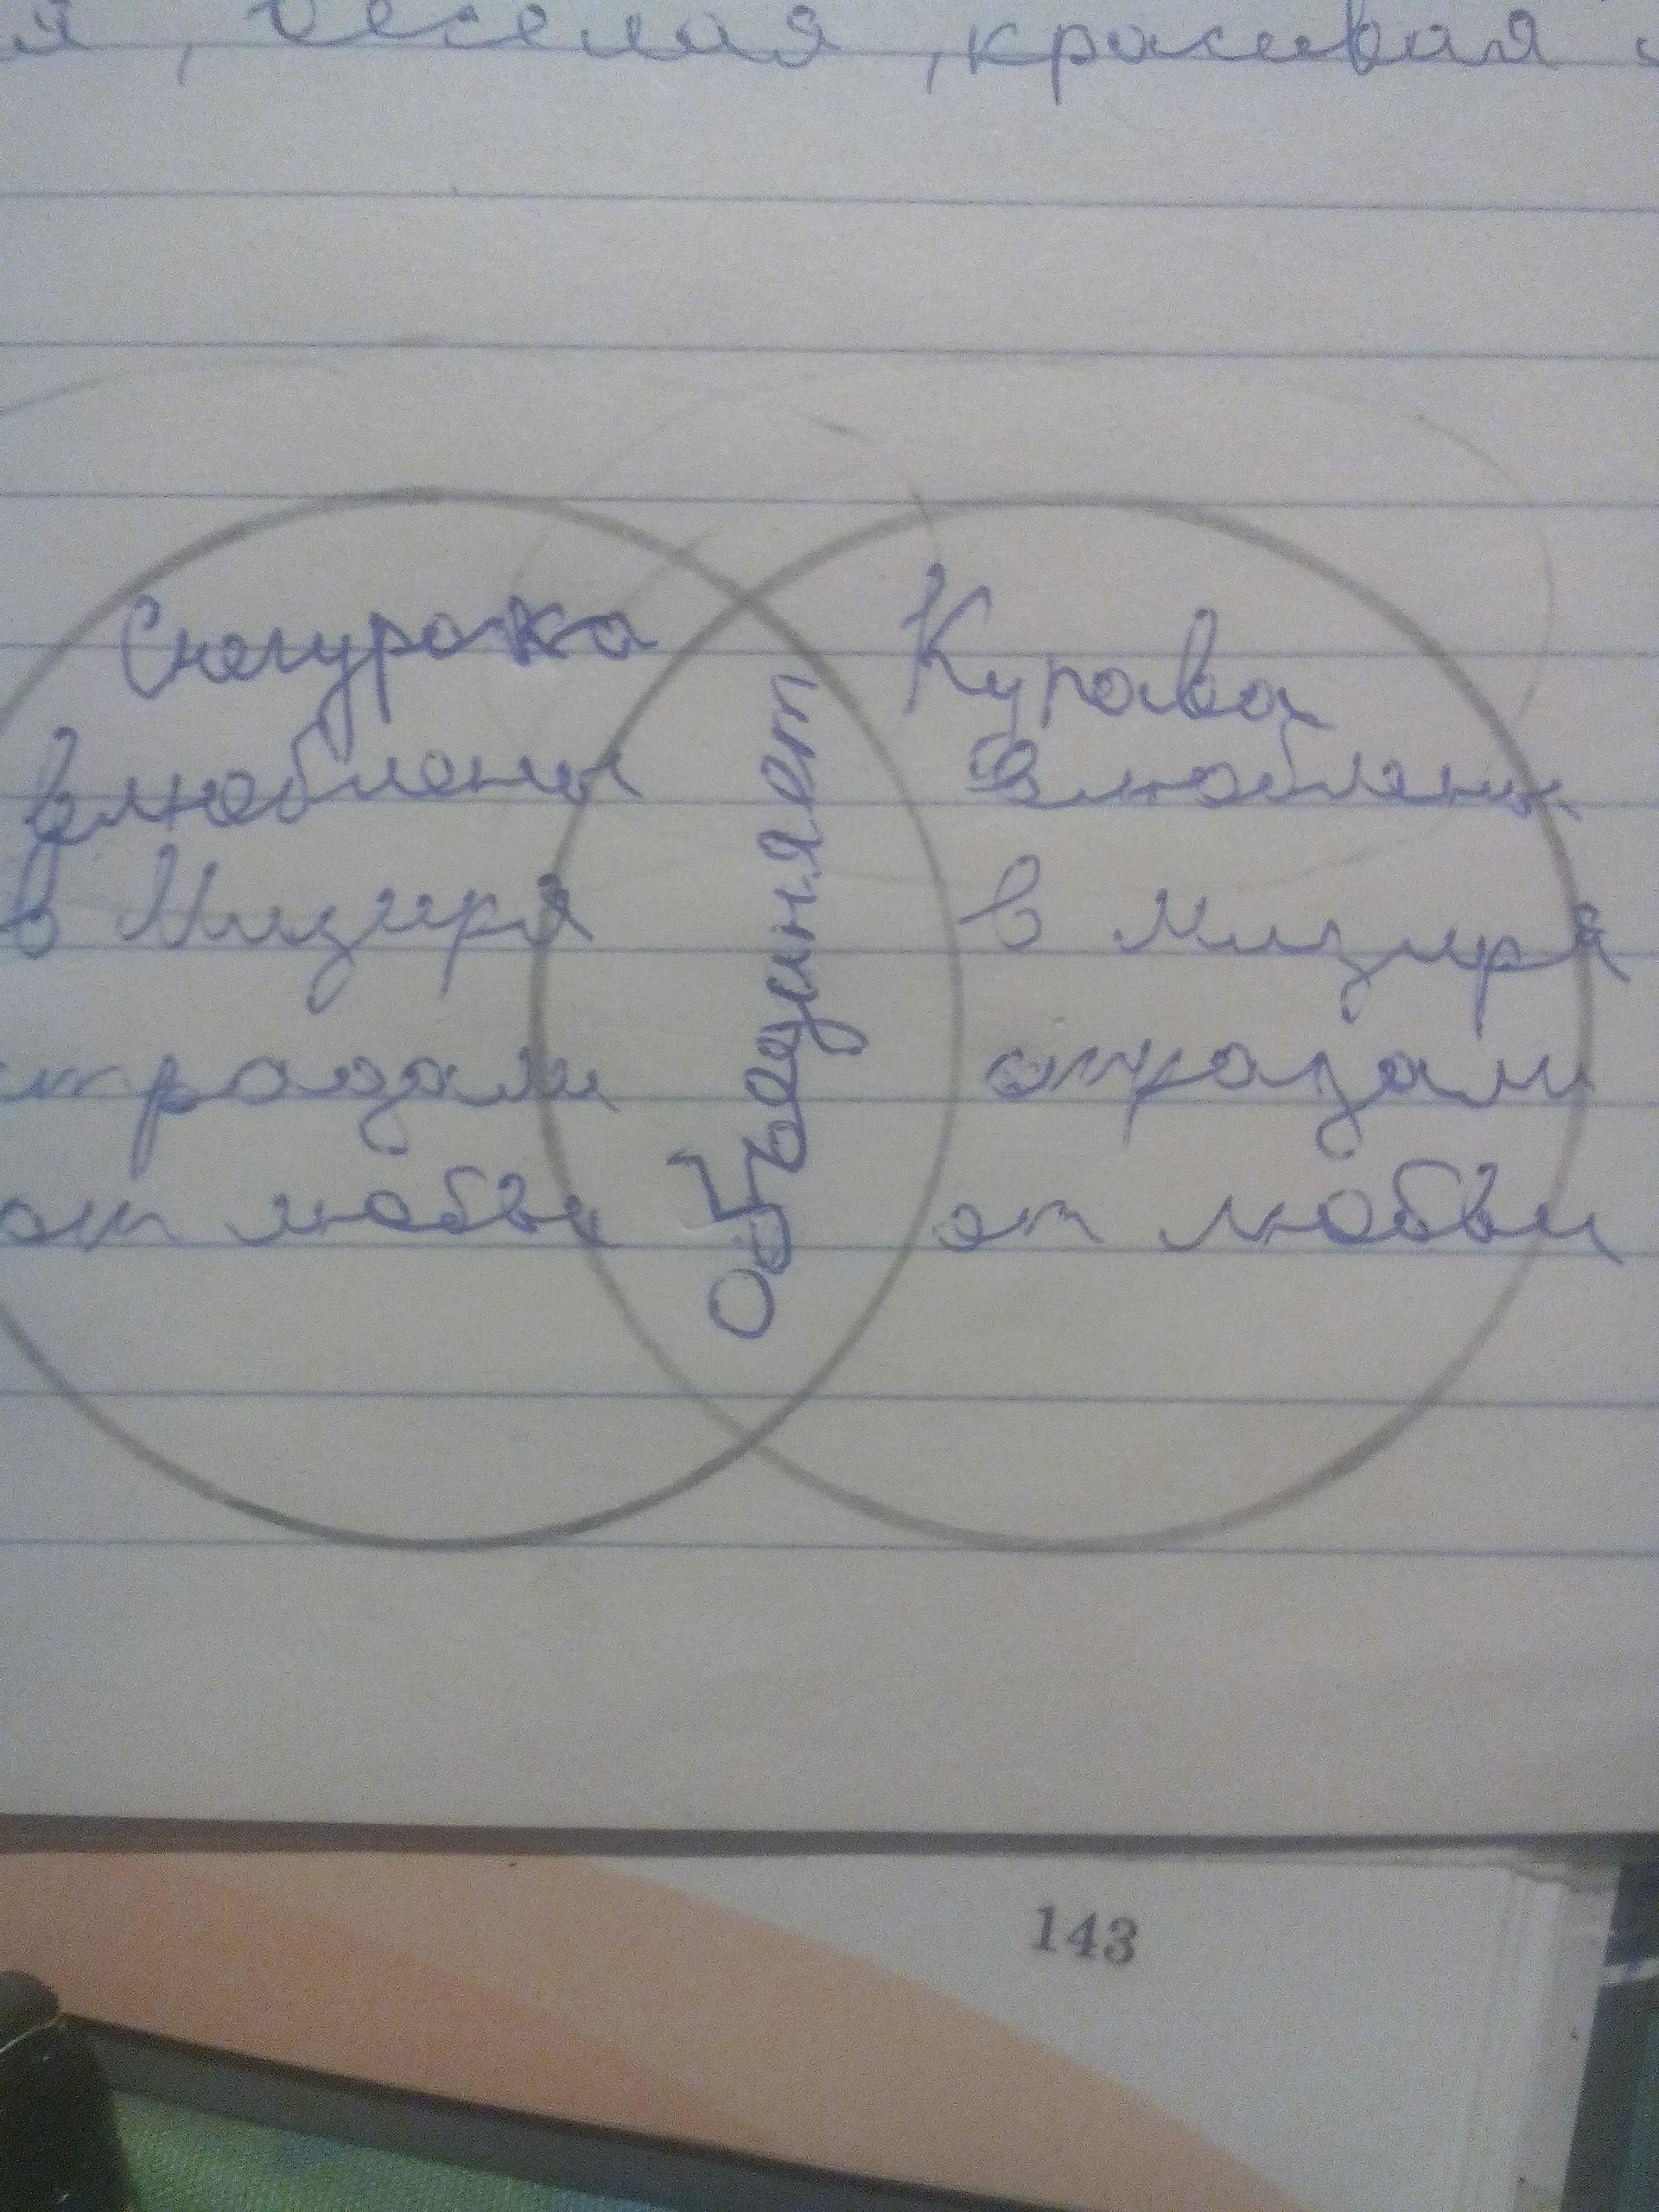 я, веселая, красивая
Снегурочка
влюблены
в Мизгиря
страдали
от любви
Объединяет
Купава
влюблены
в Мизгиря
страдали
от любви
143